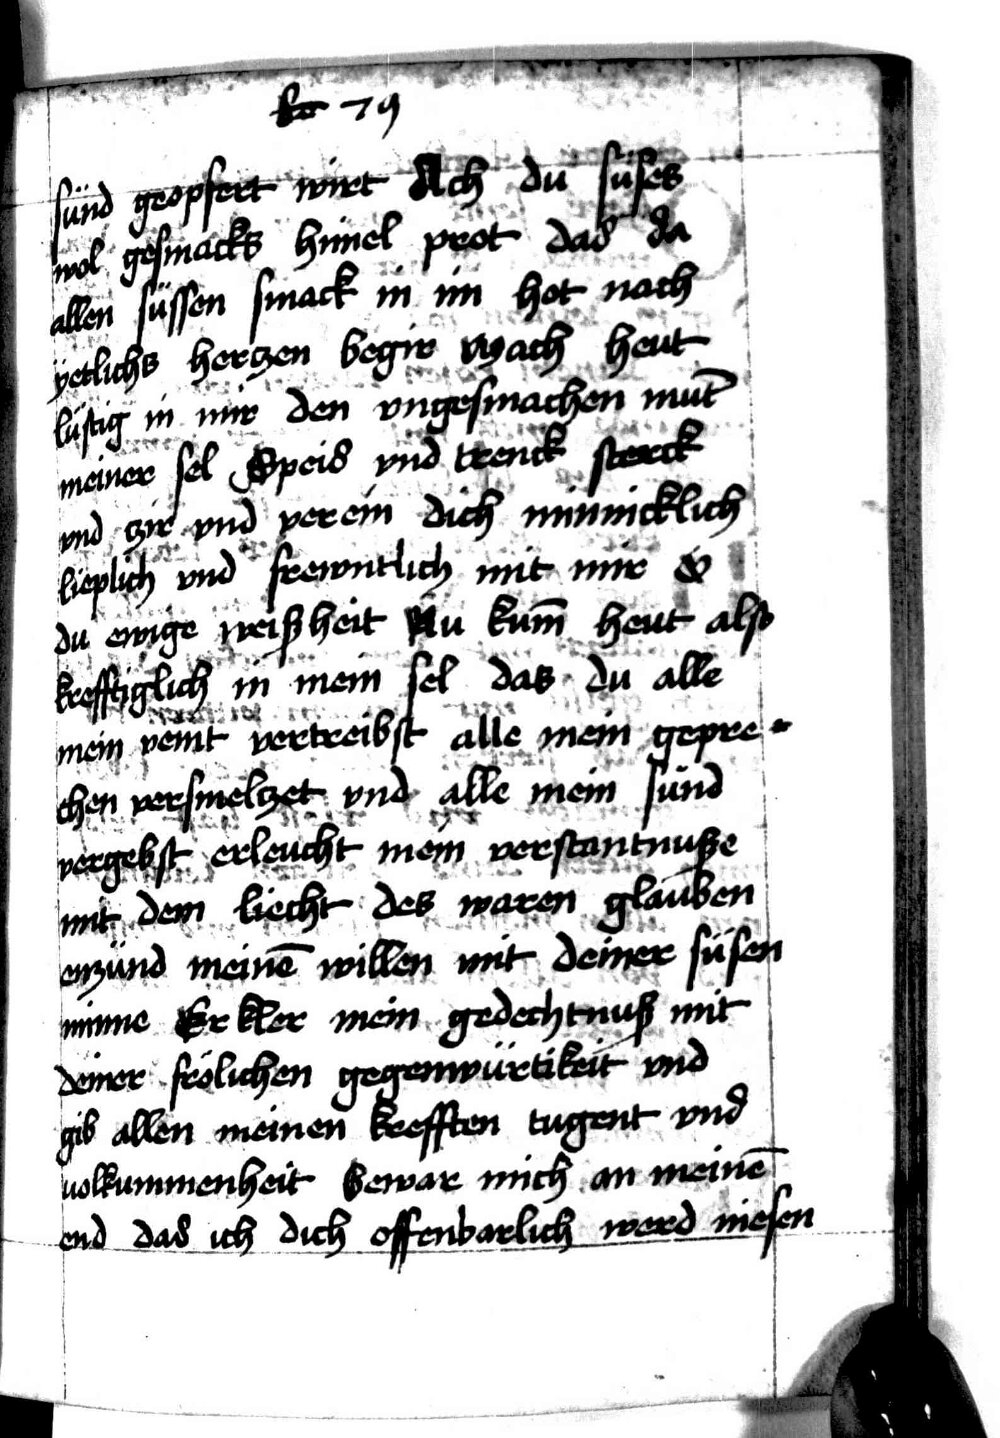 79
sünd geopfert wirt Ach du süses
wol gesmacks himel prot das da
allen süssen smack in im hot nach
yetlichs hertzen begir Mach heut
lüstig in mir den vngesmachen mut
meiner sel Speis vnd trenck sterck
vnd zir vnd verein dich minnicklich
lieplich vnd frewntlich mit mir O
du ewige weißheit Nu kum̄ heut also
krefftiglich in mein sel das du alle
mein veint vertreibst alle mein gepre-
chen versmeltzet vnd alle mein sünd
vergebst erleucht mein verstantnuße
mit dem liecht des waren glauben
enzünd meinē willen mit deiner süsen
minne Erkler mein gedechtnuß mit
deiner frölichen gegenwürtikeit vnd
gib allen meinen krefften tugent vnd
volkummenheit Bewar mich an meinē
end das ich dich offenbarlich werd niesen